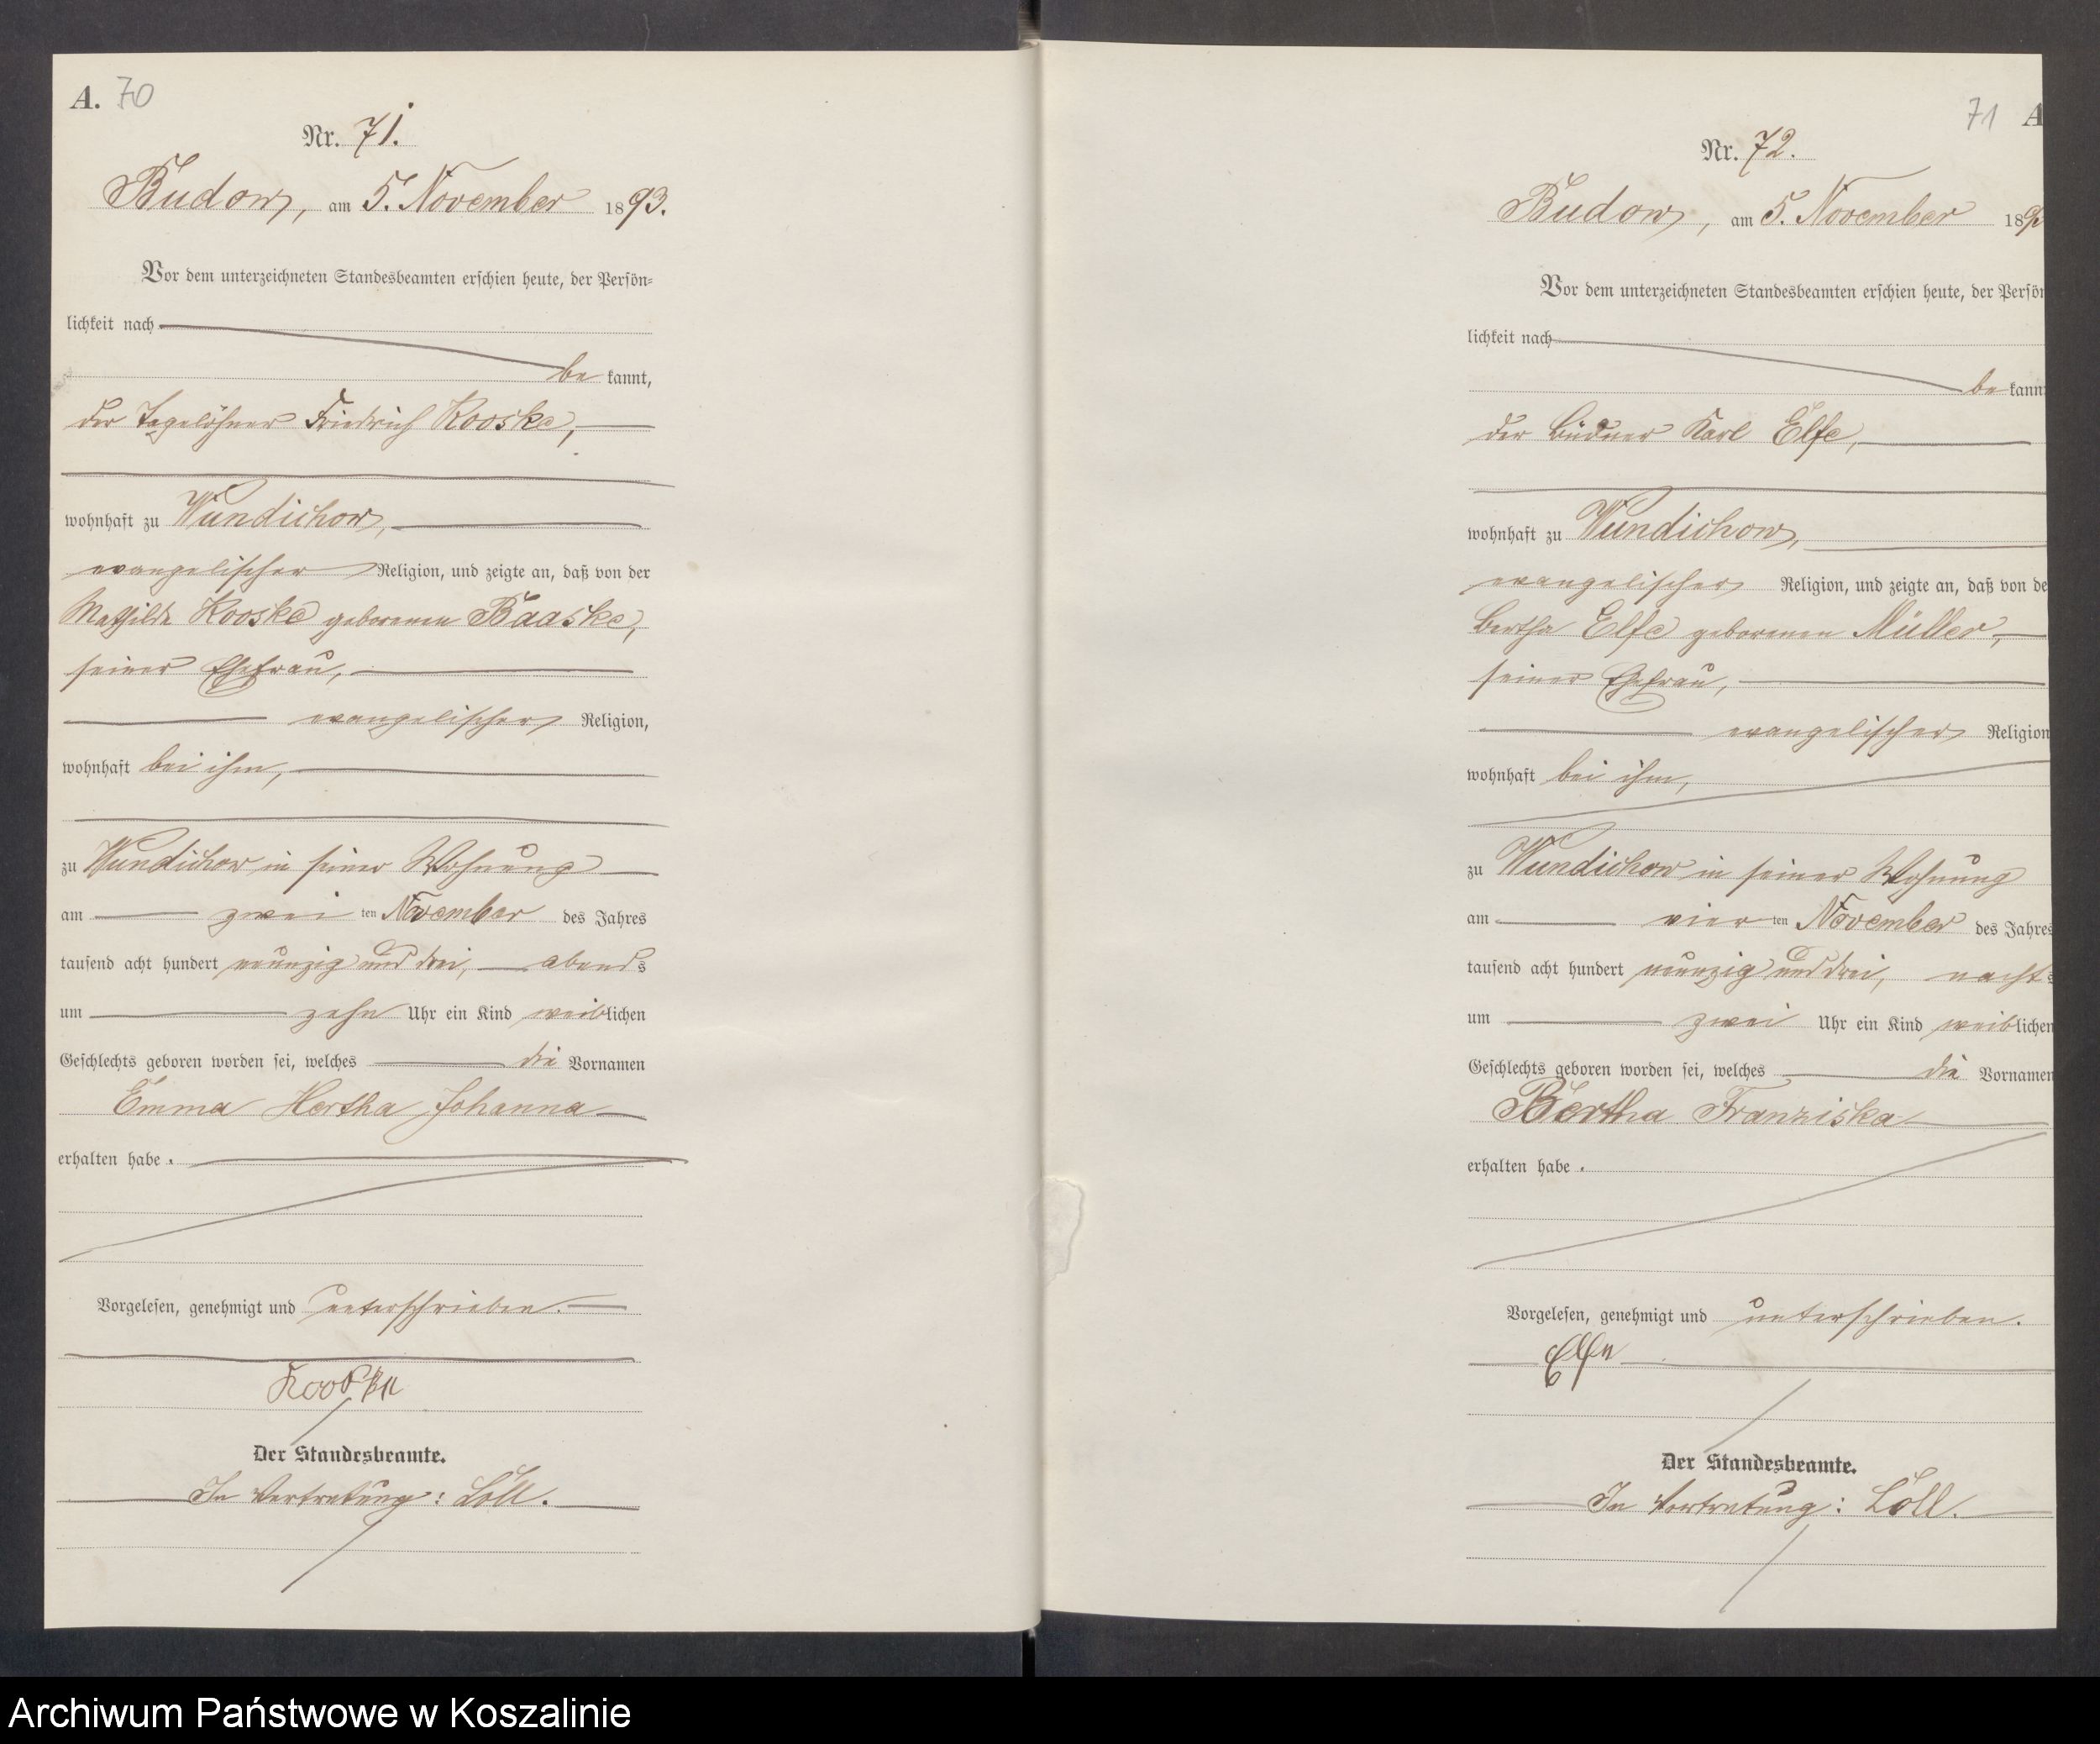 A. 70
Nr. 71.
Budow, am 5. November 1893.
Vor dem unterzeichneten Standesbeamten erschien heute, der Persön-
lichkeit nach
be kannt,
der Tagelöhner Friedrich Kooske,
wohnhaft zu Wundichow,
evangelischer Religion, und zeigte an, daß von der
Mathilde Kooske geborenen Baaske,
seiner Ehefrau,
evangelischer Religion,
wohnhaft bei ihm,
zu Wundichow in seiner Wohnung
am zwei ten November des Jahres
tausend acht hundert neunzig und drei, abends
um zehn Uhr ein Kind weiblichen
Geschlechts geboren worden sei, welches die Vornamen
Emma Hertha Johanna
erhalten habe.
Vorgelesen, genehmigt und unterschrieben.
Kooske
Der Standesbeamte.
In Vertretung: Löll.
71 A
Nr. 72.
Budow, am 5. November 189
Vor dem unterzeichneten Standesbeamten erschien heute, der Persön
lichkeit nach
be kann
der Büdner Karl Elfe,
wohnhaft zu Wundichow,
evangelischer Religion, und zeigte an, daß von de
Bertha Elfe geborenen Müller,
seiner Ehefrau,
evangelischer Religion
wohnhaft bei ihm,
zu Wundichow in seiner Wohnung
am vier ten November des Jahres
tausend acht hundert neunzig und drei, nachts
um zwei Uhr ein Kind weiblichen
Geschlechts geboren worden sei, welches die Vornamen
Bertha Franziska
erhalten habe.
Vorgelesen, genehmigt und unterschrieben.
Elfe
Der Standesbeamte.
In Vertretung: Löll.
Archiwum Państwowe w Koszalinie